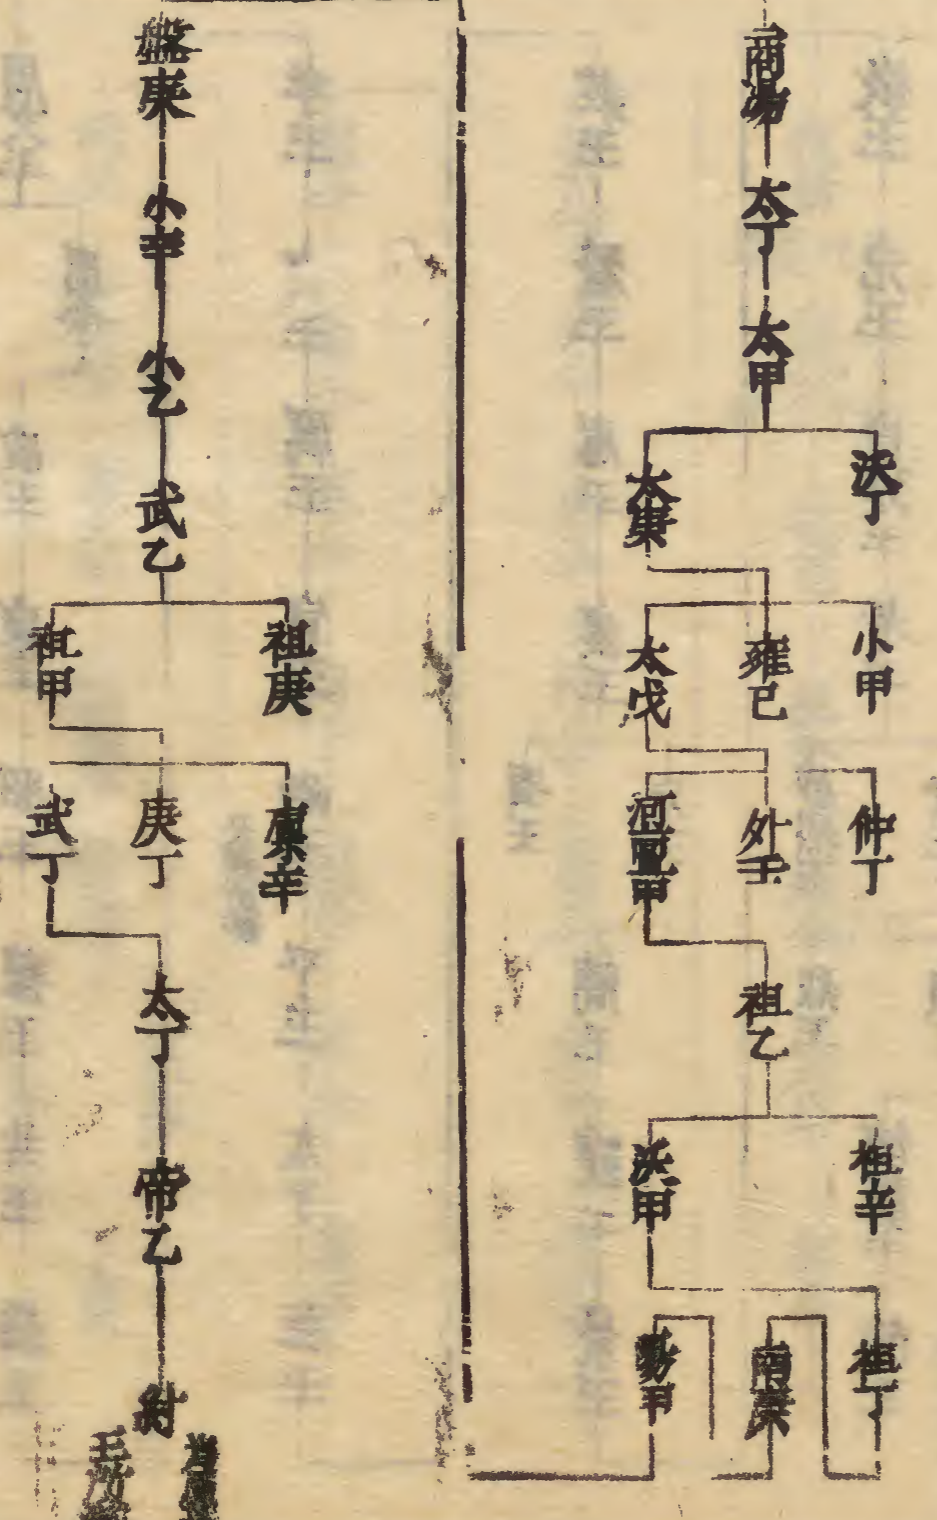 商湯
太丁
太甲
沃丁
太庚
小甲
雍己
太戊
仲丁
外壬
河亶甲
祖乙
祖辛
沃甲
祖丁
南庚
陽甲
盤庚
小辛
小乙
武乙
祖庚
祖甲
廩辛
庚丁
武丁
太丁
帝乙
紂